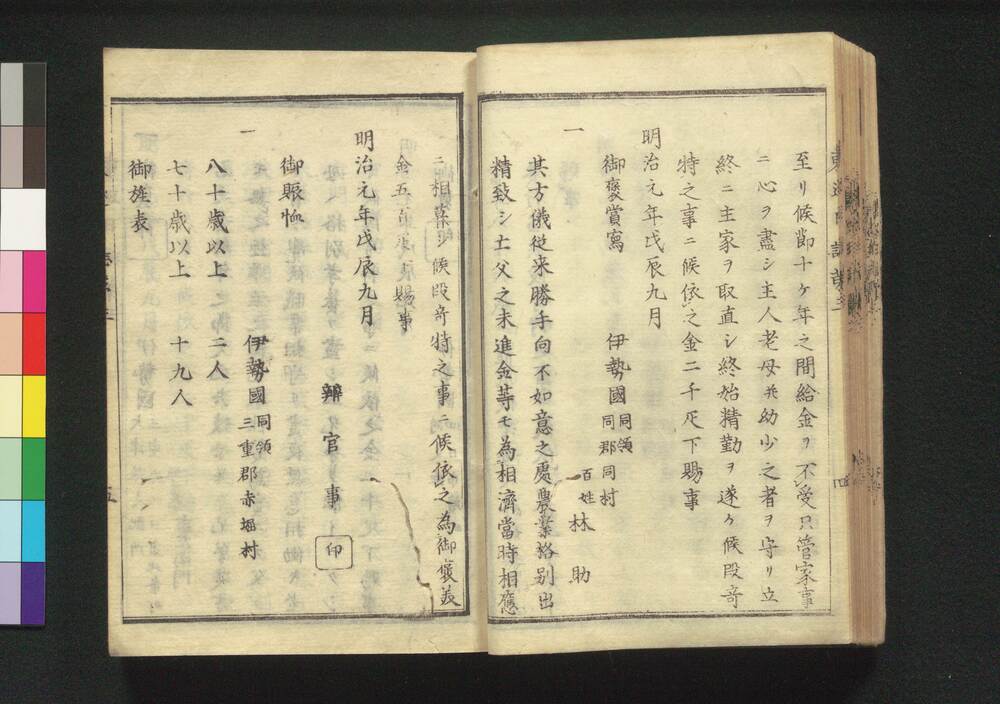 至リ候節十ケ年之間給金ヲ不受只管家事
ニ心ヲ盡シ主人老母幷幼少之者ヲ守リ立
終ニ主家ヲ取直シ終始精勤ヲ遂ケ候段奇
特之事ニ候依之金二千疋下賜事
明治元年戊辰九月
御褒賞寫
伊勢國同領同郡同村
百姓 林助
一
其方儀従来勝手向不如意之處農業格別出
精致シ土父之未進金等モ為相濟當時相應
ニ相暮シ候段奇特之事ニ候依之為御褒美
金五百疋賜事
明治元年戊辰九月
辨官事 印
御賑恤
一
伊勢國同領三重郡赤堀村
八十歳以上 二人
七十歳以上 十九人
御旌表